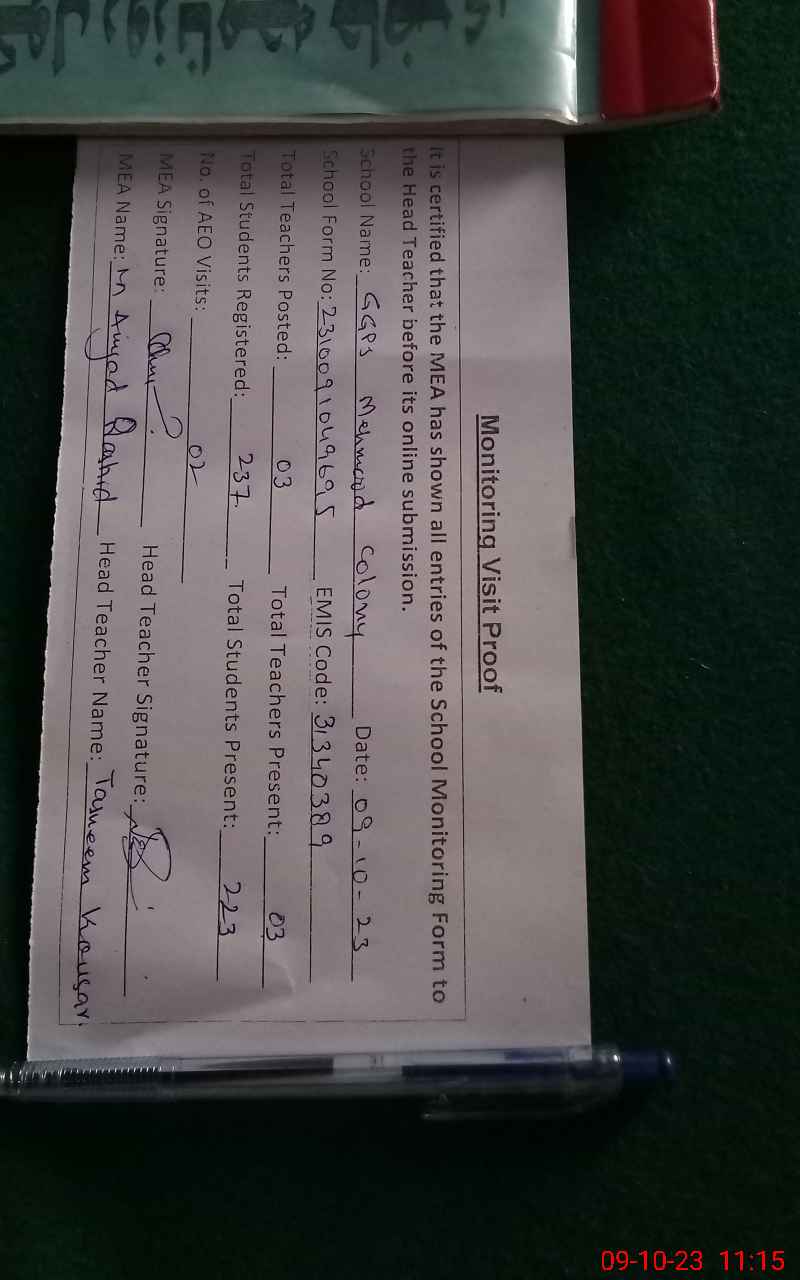 Monitoring Visit Proof
It is certified that the MEA has shown all entries of the School Monitoring Form to
the Head Teacher before its online submission.
School Name: GGPS Mehmood Colony Date: 09-10-23
School Form No: 2310091049695 EMIS Code: 31340389
Total Teachers Posted: 03 Total Teachers Present: 03
Total Students Registered: 237 Total Students Present: 223
No. of AEO Visits: 02
MEA Signature: Head Teacher Signature:
MEA Name: M Amjad Rashid Head Teacher Name: Tasneem Kousar
09-10-23 11:15